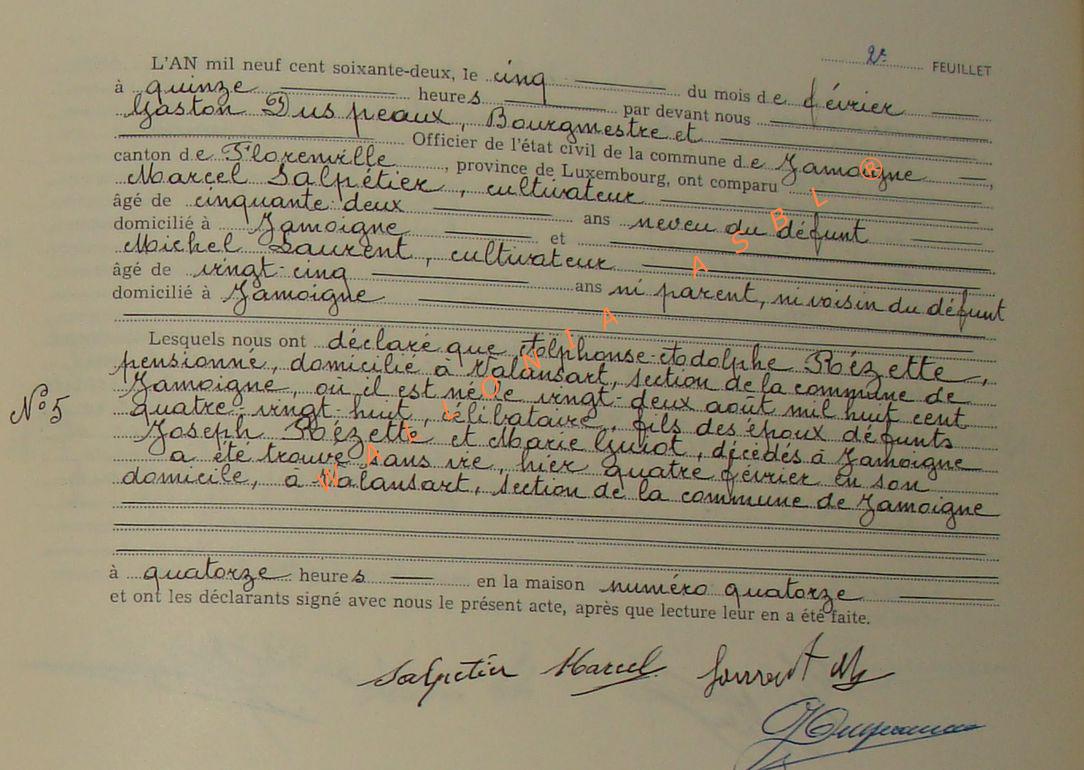 2e FEUILLET
L'AN mil neuf cent soixante-deux, le cinq du mois de février
à quinze heures par devant nous
Gaston Duspeaux, Bourgmestre et
Officier de l'état civil de la commune de Jamoigne,
canton de Florenville, province de Luxembourg, ont comparu
Marcel Salpétier, cultivateur
âgé de cinquante deux ans neveu du défunt
domicilié à Jamoigne et
Michel Laurent, cultivateur
âgé de vingt-cinq ans ni parent, ni voisin du défunt
domicilié à Jamoigne
Lesquels nous ont déclaré que Alphonse-Adolphe Rézette,
pensionné, domicilié à Valansart, section de la commune de
Jamoigne, où il est né le vingt-deux août mil huit cent
N° 5
quatre-vingt-huit, célibataire, fils des époux défunts
Joseph Rézette et Marie Guiot, décédés à Jamoigne
a été trouvé sans vie, hier quatre février en son
domicile, à Valansart, section de la commune de Jamoigne
à quatorze heures en la maison numéro quatorze
et ont les déclarants signé avec nous le présent acte, après que lecture leur en a été faite.
Salpétier Marcel
WALLONIA ASBL ®